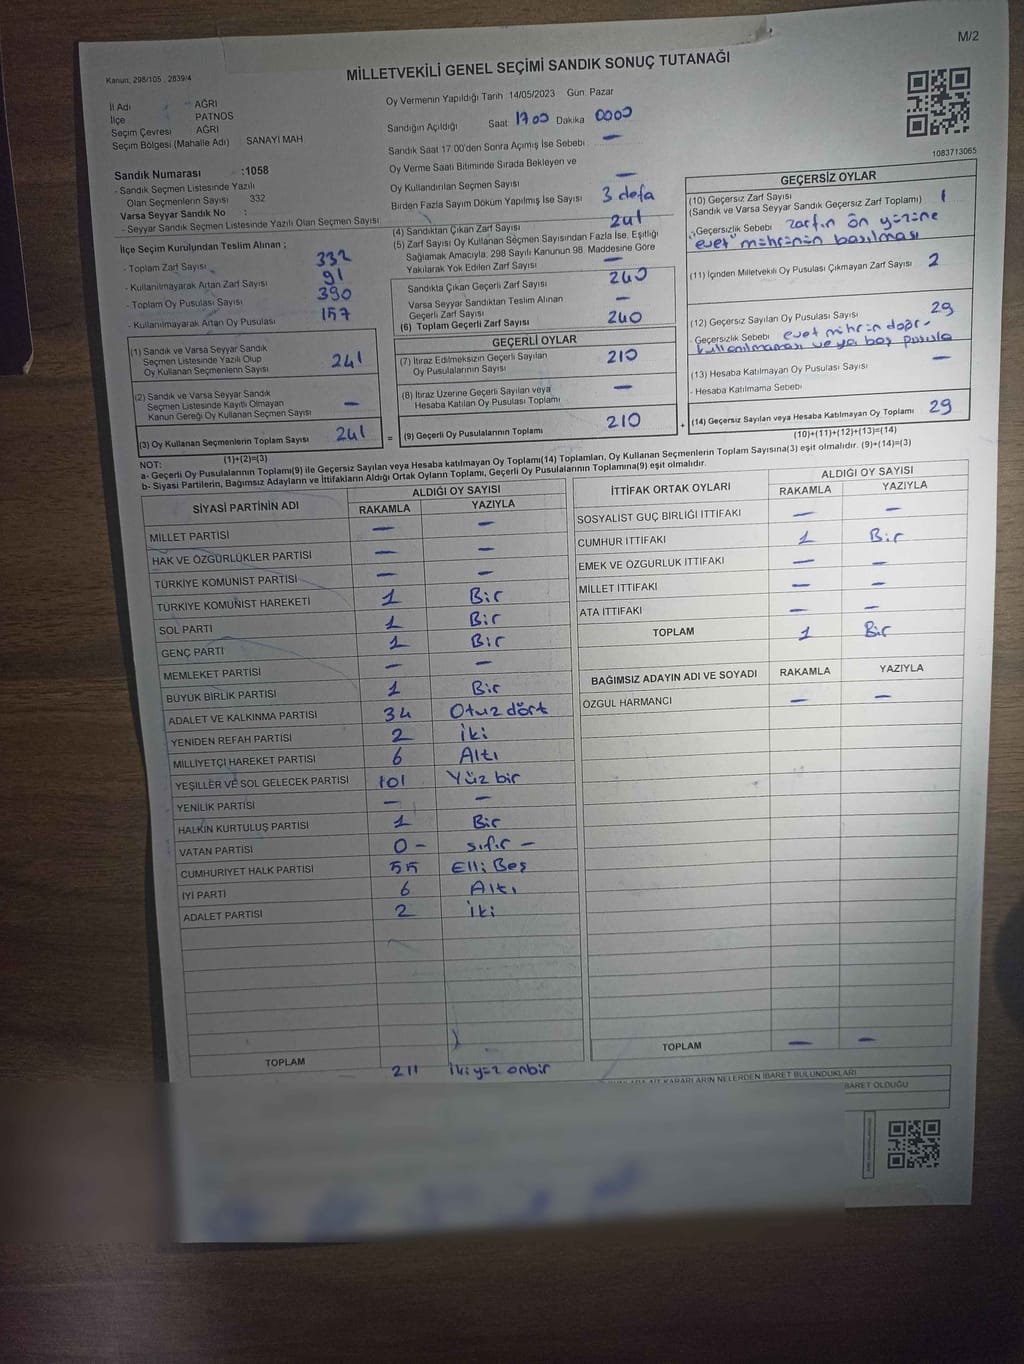 M/2
Kanun, 298/105 , 2839/4
MİLLETVEKİLİ GENEL SEÇİMİ SANDIK SONUÇ TUTANAĞI
İl Adı AĞRI
İlçe PATNOS
Seçim Çevresi AĞRI
Seçim Bölgesi (Mahalle Adı) SANAYİ MAH
Sandık Numarası :1058
- Sandık Seçmen Listesinde Yazılı
Olan Seçmenlerin Sayısı 332
Varsa Seyyar Sandık No :
- Seyyar Sandık Seçmen Listesinde Yazılı Olan Seçmen Sayısı
İlçe Seçim Kurulundan Teslim Alınan ;
- Toplam Zarf Sayısı 332
- Kullanılmayarak Artan Zarf Sayısı 91
- Toplam Oy Pusulası Sayısı 390
- Kullanılmayarak Artan Oy Pusulası 157
(1) Sandık ve Varsa Seyyar Sandık
Seçmen Listesinde Yazılı Olup
Oy Kullanan Seçmenlerin Sayısı 241
(2) Sandık ve Varsa Seyyar Sandık
Seçmen Listesinde Kayıtlı Olmayan
Kanun Gereği Oy Kullanan Seçmen Sayısı —
(3) Oy Kullanan Seçmenlerin Toplam Sayısı 241
(1)+(2)=(3)
Oy Vermenin Yapıldığı Tarih 14/05/2023 Gün: Pazar
Sandığın Açıldığı Saat 1700 Dakika 0000
Sandık Saat 17:00'den Sonra Açımış İse Sebebi —
Oy Verme Saati Bitiminde Sırada Bekleyen ve
Oy Kullandırılan Seçmen Sayısı —
Birden Fazla Sayım Döküm Yapılmış İse Sayısı 3 defa
(4) Sandıktan Çıkan Zarf Sayısı 241
(5) Zarf Sayısı Oy Kullanan Seçmen Sayısından Fazla İse, Eşitliği
Sağlamak Amacıyla; 298 Sayılı Kanunun 98. Maddesine Göre
Yakılarak Yok Edilen Zarf Sayısı —
Sandıkta Çıkan Geçerli Zarf Sayısı 240
Varsa Seyyar Sandıktan Teslim Alınan
Geçerli Zarf Sayısı —
(6) Toplam Geçerli Zarf Sayısı 240
GEÇERLİ OYLAR
(7) İtiraz Edilmeksizin Geçerli Sayılan
Oy Pusulalarının Sayısı 210
(8) İtiraz Üzerine Geçerli Sayılan veya
Hesaba Katılan Oy Pusulası Toplamı —
= (9) Geçerli Oy Pusulalarının Toplamı 210
1083713065
GEÇERSİZ OYLAR
(10) Geçersiz Zarf Sayısı 1
(Sandık ve Varsa Seyyar Sandık Geçersiz Zarf Toplamı)
- Geçersizlik Sebebi zarfın ön yüzüne
"evet" mührünün basılması
(11) İçinden Milletvekili Oy Pusulası Çıkmayan Zarf Sayısı 2
(12) Geçersiz Sayılan Oy Pusulası Sayısı 29
- Geçersizlik Sebebi evet mührün doğr-
kullanılmaması veya boş pusula
(13) Hesaba Katılmayan Oy Pusulası Sayısı —
- Hesaba Katılmama Sebebi
+ (14) Geçersiz Sayılan veya Hesaba Katılmayan Oy Toplamı 29
(10)+(11)+(12)+(13)=(14)
NOT:
a- Geçerli Oy Pusulalarının Toplamı(9) ile Geçersiz Sayılan veya Hesaba katılmayan Oy Toplamı(14) Toplamları, Oy Kullanan Seçmenlerin Toplam Sayısına(3) eşit olmalıdır. (9)+(14)=(3)
b- Siyasi Partilerin, Bağımsız Adayların ve İttifakların Aldığı Ortak Oyların Toplamı, Geçerli Oy Pusulalarının Toplamına(9) eşit olmalıdır.
SİYASİ PARTİNİN ADI ALDIĞI OY SAYISI
RAKAMLA YAZIYLA
MİLLET PARTİSİ — —
HAK VE ÖZGÜRLÜKLER PARTİSİ — —
TÜRKİYE KOMÜNİST PARTİSİ — —
TÜRKİYE KOMÜNİST HAREKETİ 1 Bir
SOL PARTİ 1 Bir
GENÇ PARTİ 1 Bir
MEMLEKET PARTİSİ — —
BÜYÜK BİRLİK PARTİSİ 1 Bir
ADALET VE KALKINMA PARTİSİ 34 Otuz dört
YENİDEN REFAH PARTİSİ 2 İki
MİLLİYETÇİ HAREKET PARTİSİ 6 Altı
YEŞİLLER VE SOL GELECEK PARTİSİ 101 Yüz bir
YENİLİK PARTİSİ — —
HALKIN KURTULUŞ PARTİSİ 1 Bir
VATAN PARTİSİ 0 — sıfır —
CUMHURİYET HALK PARTİSİ 55 Elli Beş
İYİ PARTİ 6 Altı
ADALET PARTİSİ 2 İki
TOPLAM 211 İkiyüz onbir
İTTİFAK ORTAK OYLARI ALDIĞI OY SAYISI
RAKAMLA YAZIYLA
SOSYALİST GÜÇ BİRLİĞİ İTTİFAKI — —
CUMHUR İTTİFAKI 1 Bir
EMEK VE ÖZGÜRLÜK İTTİFAKI — —
MİLLET İTTİFAKI — —
ATA İTTİFAKI — —
TOPLAM 1 Bir
BAĞIMSIZ ADAYIN ADI VE SOYADI RAKAMLA YAZIYLA
ÖZGÜL HARMANCI — —
TOPLAM — —
KARARLARIN NELERDEN İBARET BULUNDUKLARI
İBARET OLDUĞU